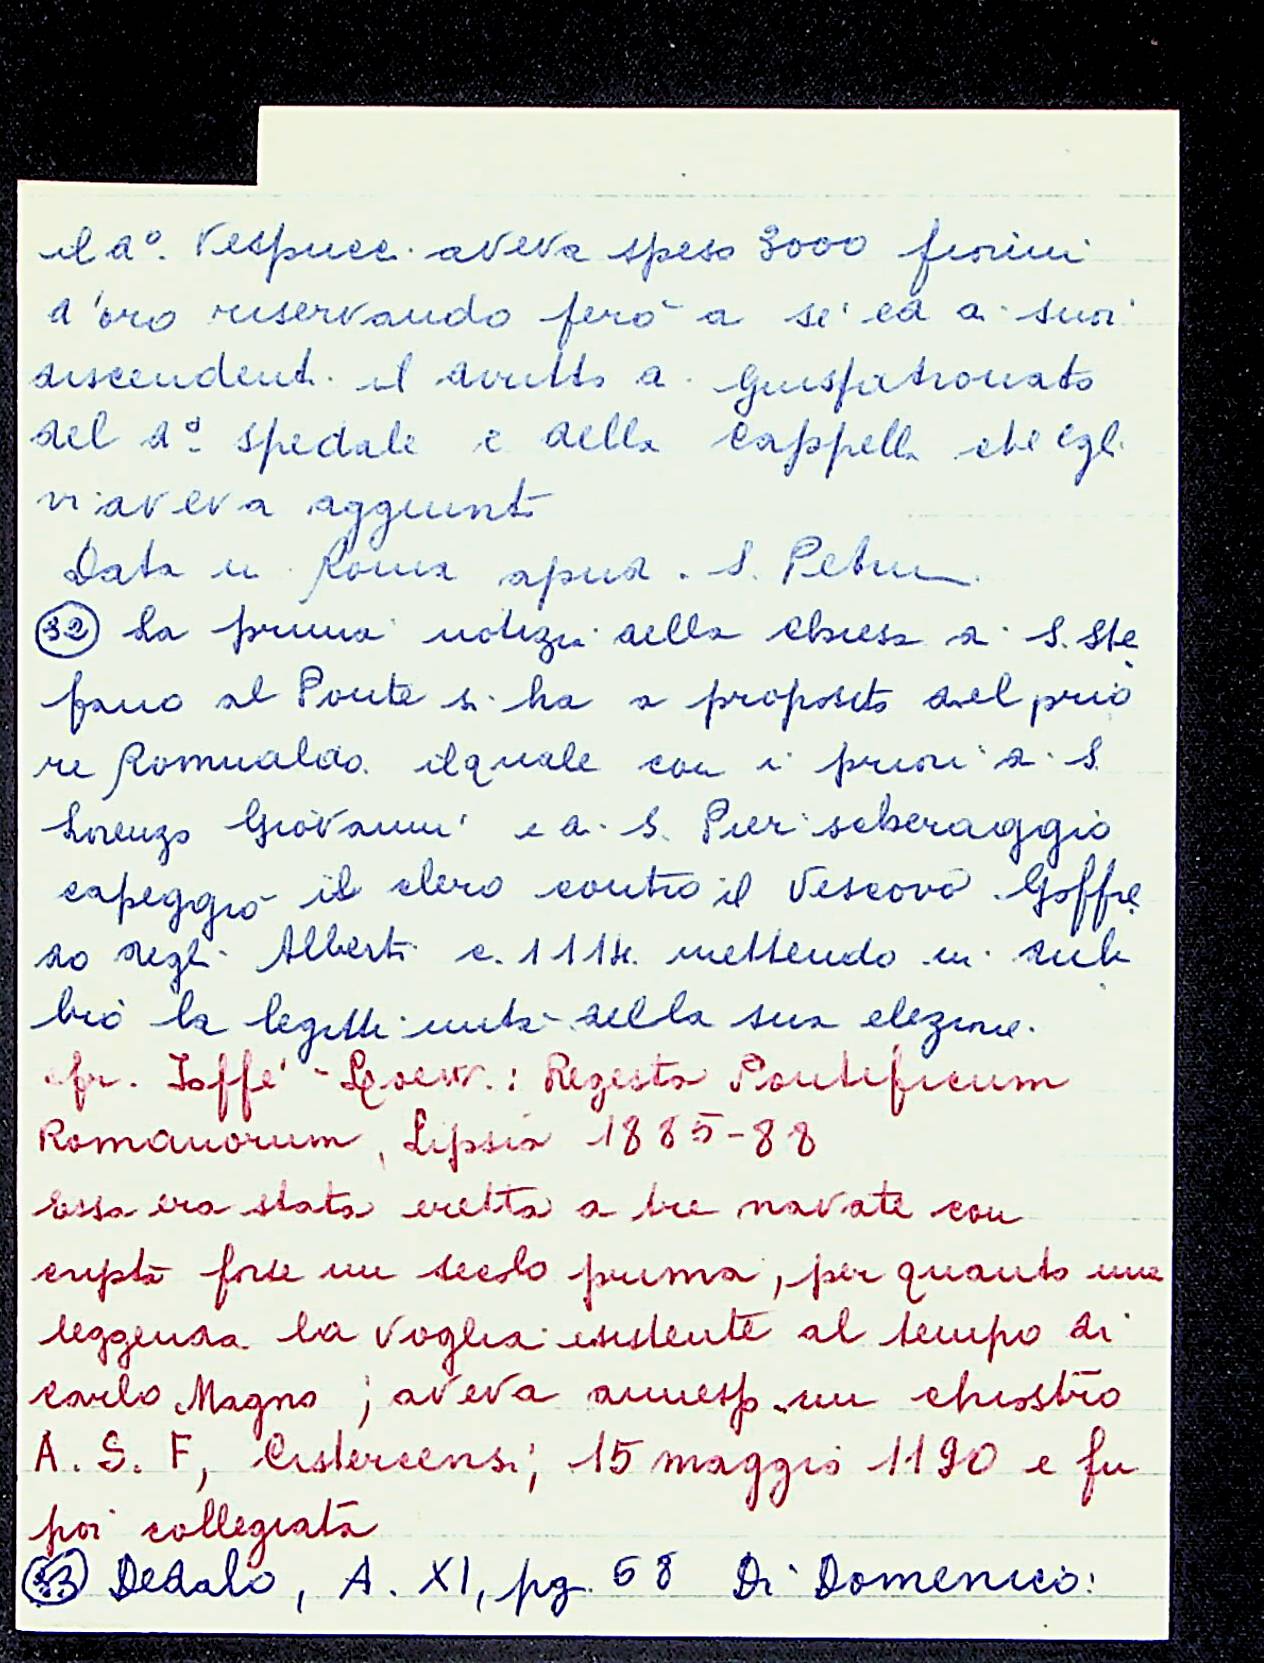 il d°. Vespucci aveva speso 3000 fiorini
d'oro riservando però a sé ed ai suoi
discendenti il diritto di Giuspatronato
del d° spedale e della Cappella che egli
vi aveva aggiunto
Data in Roma apud. S. Petrum.
(32) La prima notizia della Chiesa di S. Ste
fano al Ponte si ha a proposito del prio
re Romualdo il quale con i priori di S.
Lorenzo Giovanni e di S. Pier scheraggio
capeggiò il clero contro il Vescovo Goffre
do degli Alberti c. 1114. mettendo in dub
bio la legittimità della sua elezione.
cfr. Jaffé - Loew.: Regesta Pontificum
Romanorum, Lipsia 1885-88
Essa era stata eretta a tre navate con
cripta forse un secolo prima, per quanto una
leggenda la voglia esistente al tempo di
Carlo Magno; aveva annesso un chiostro
A. S. F, Cistercensi; 15 maggio 1190 e fu
poi collegiata
(33) Dedalo, A. XI, pg. 68 Di Domenico: